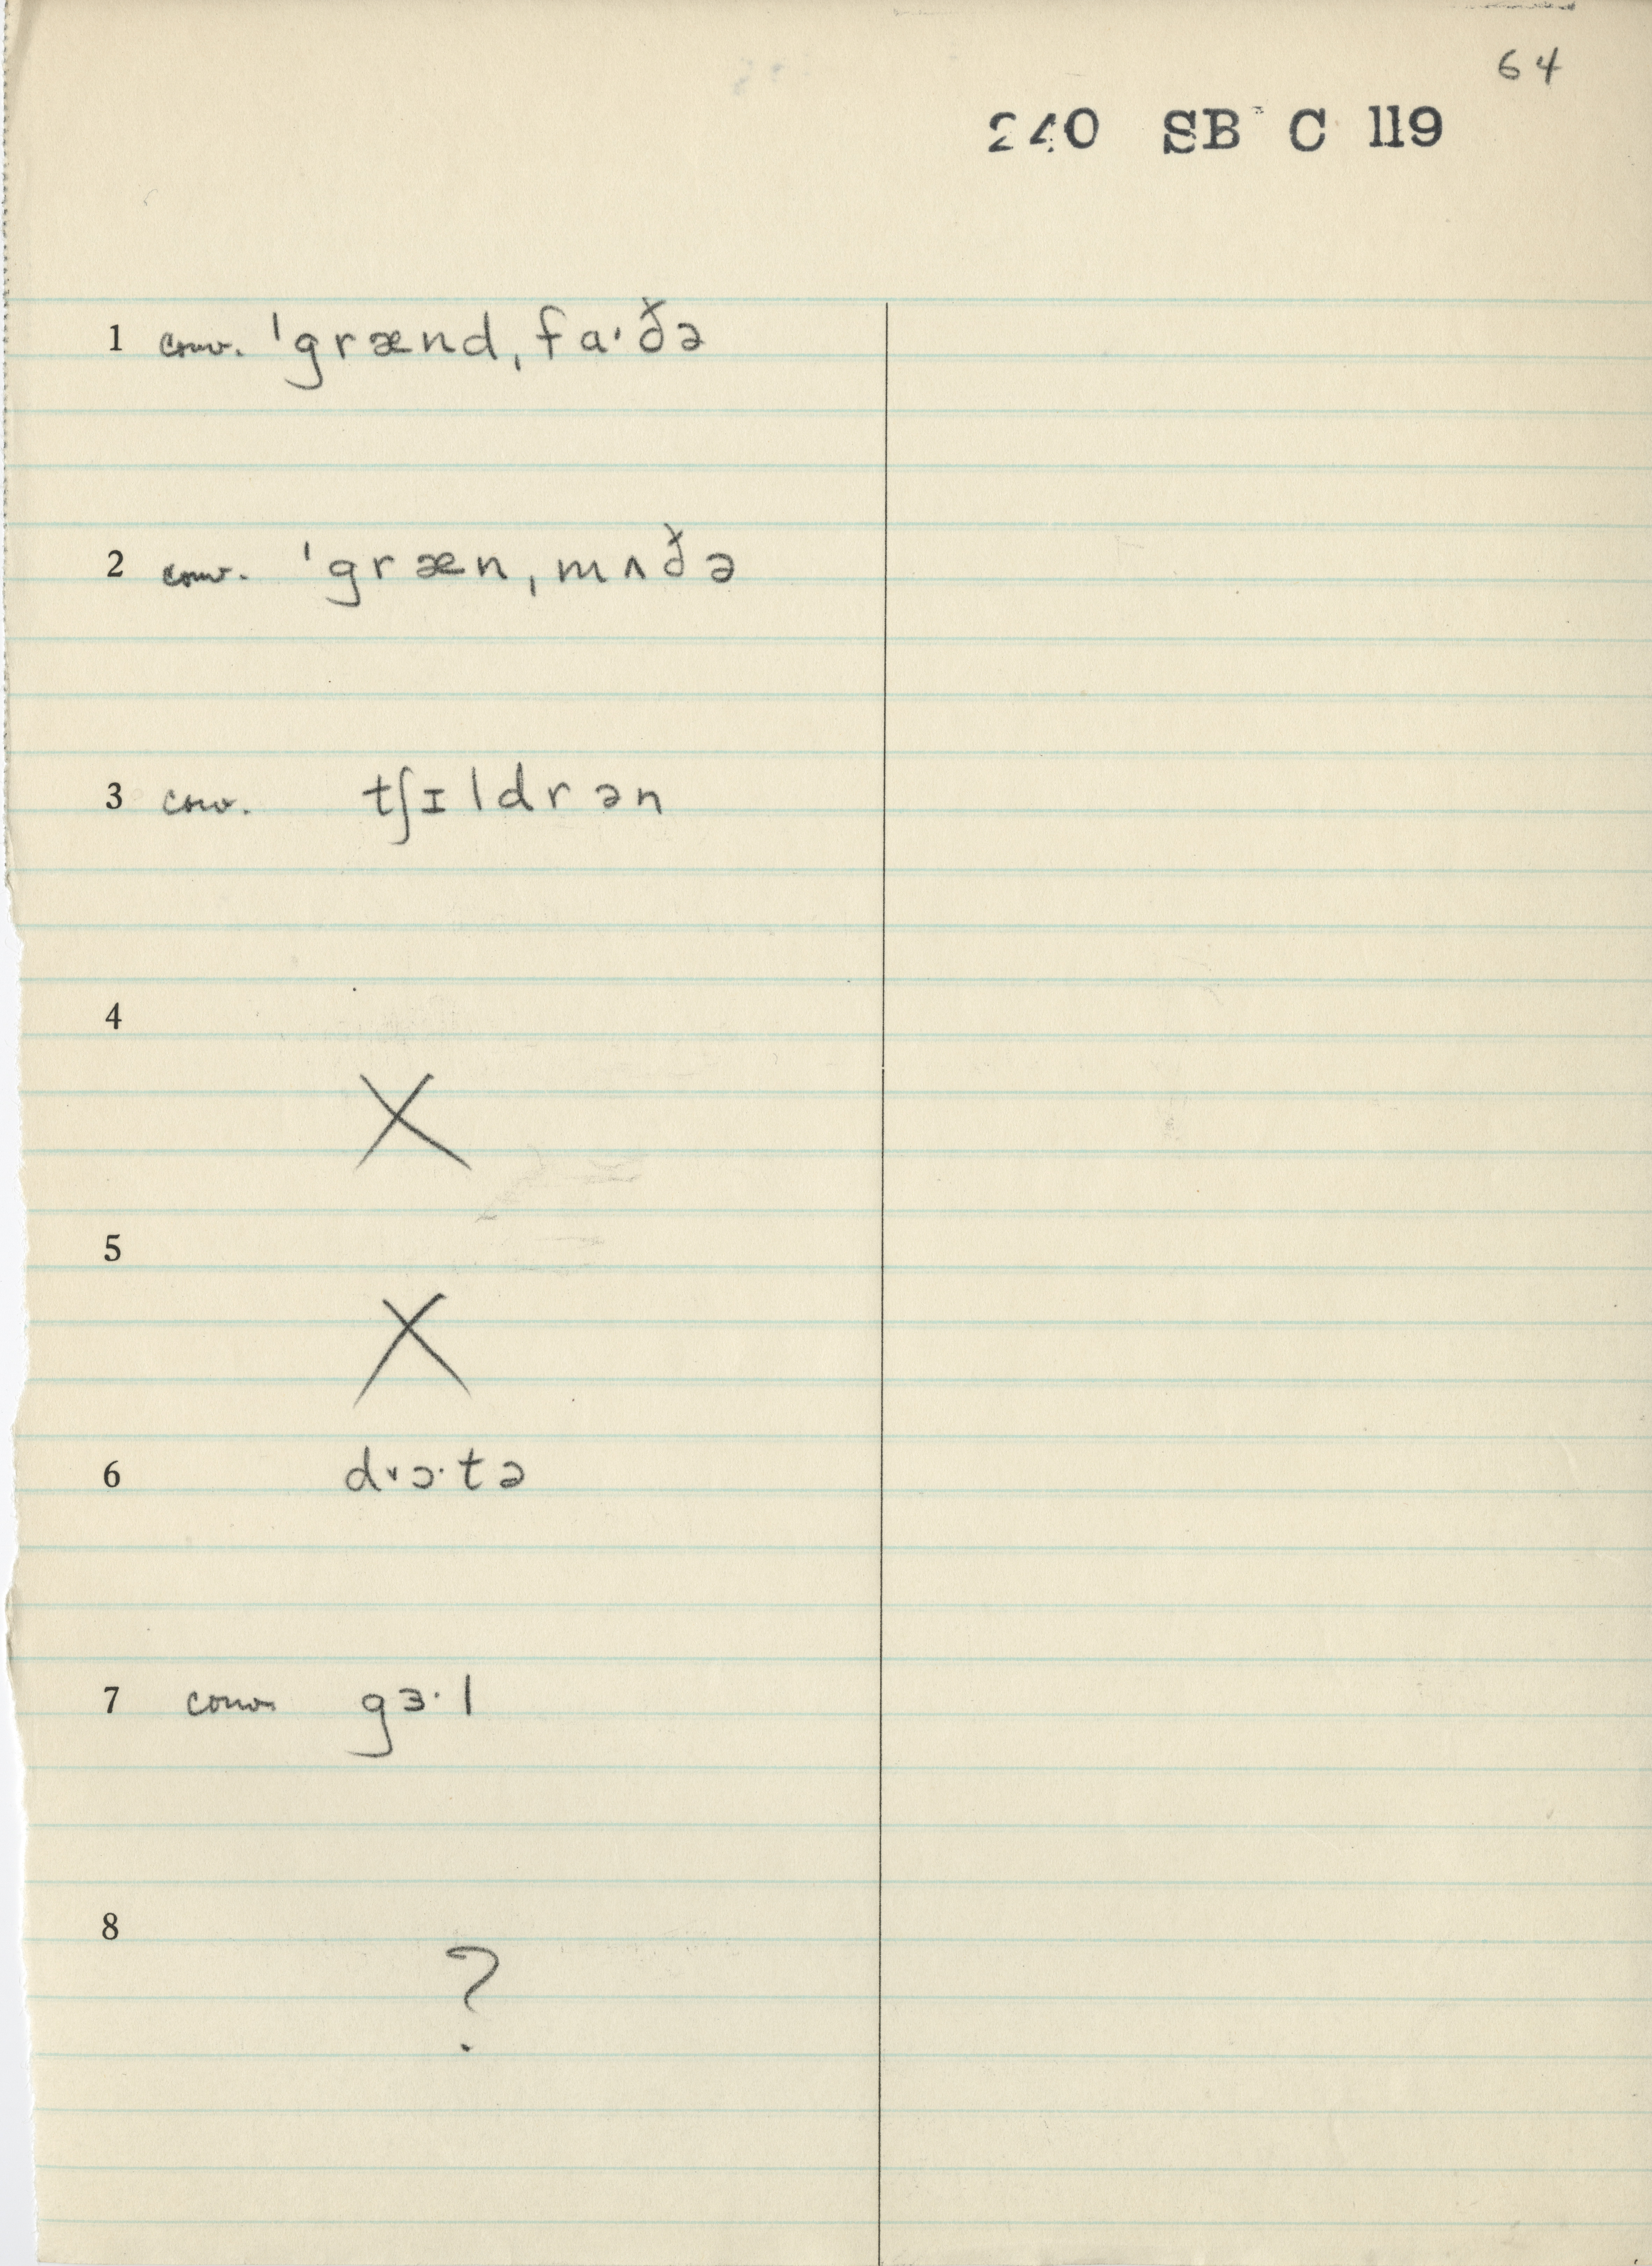 64
240 SB C 119
1 conv. ˈgrænd ˌfɑ·ðə
2 conv. ˈgræn ˌmʌðə
3 conv. tʃɪldrən
4
X
5
X
6 d˅ɔ·tə
7 conv. gɜ·l
8
?